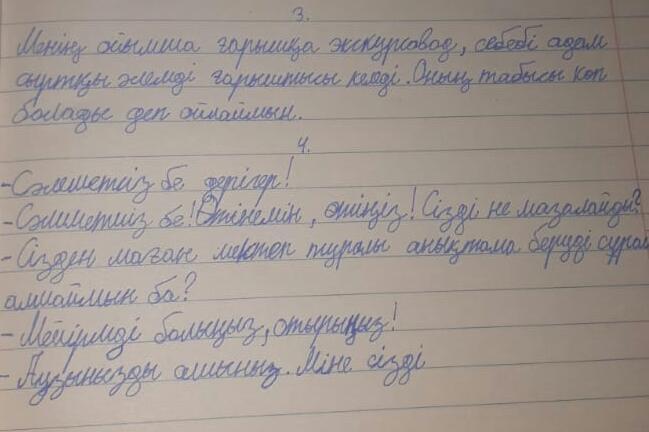 3.
Менің ойымша ғарышқа экскурсавод, себебі адам
сыртқы әлемді ғарыштысы келеді. Оның табысы көп
болады деп ойлаймын.
4.
-Сәлеметсіз бе дәрігер!
-Сәлеметсіз бе! Өтінемін, өтіңіз! Сізді не мазалайды?
-Сізден маған мектеп туралы анықтама беруді сұрап
алмаймын ба?
- Мейірмді болыңыз, отырыңыз!
- Аузыңызды ашыңыз. Міне сізді